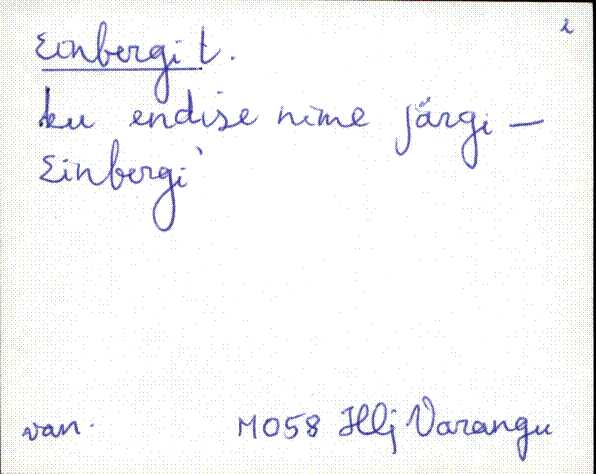 2
Einbergi t.
ku endise nime järgi —
Einbergi`
van.
M058 Hlj Varangu